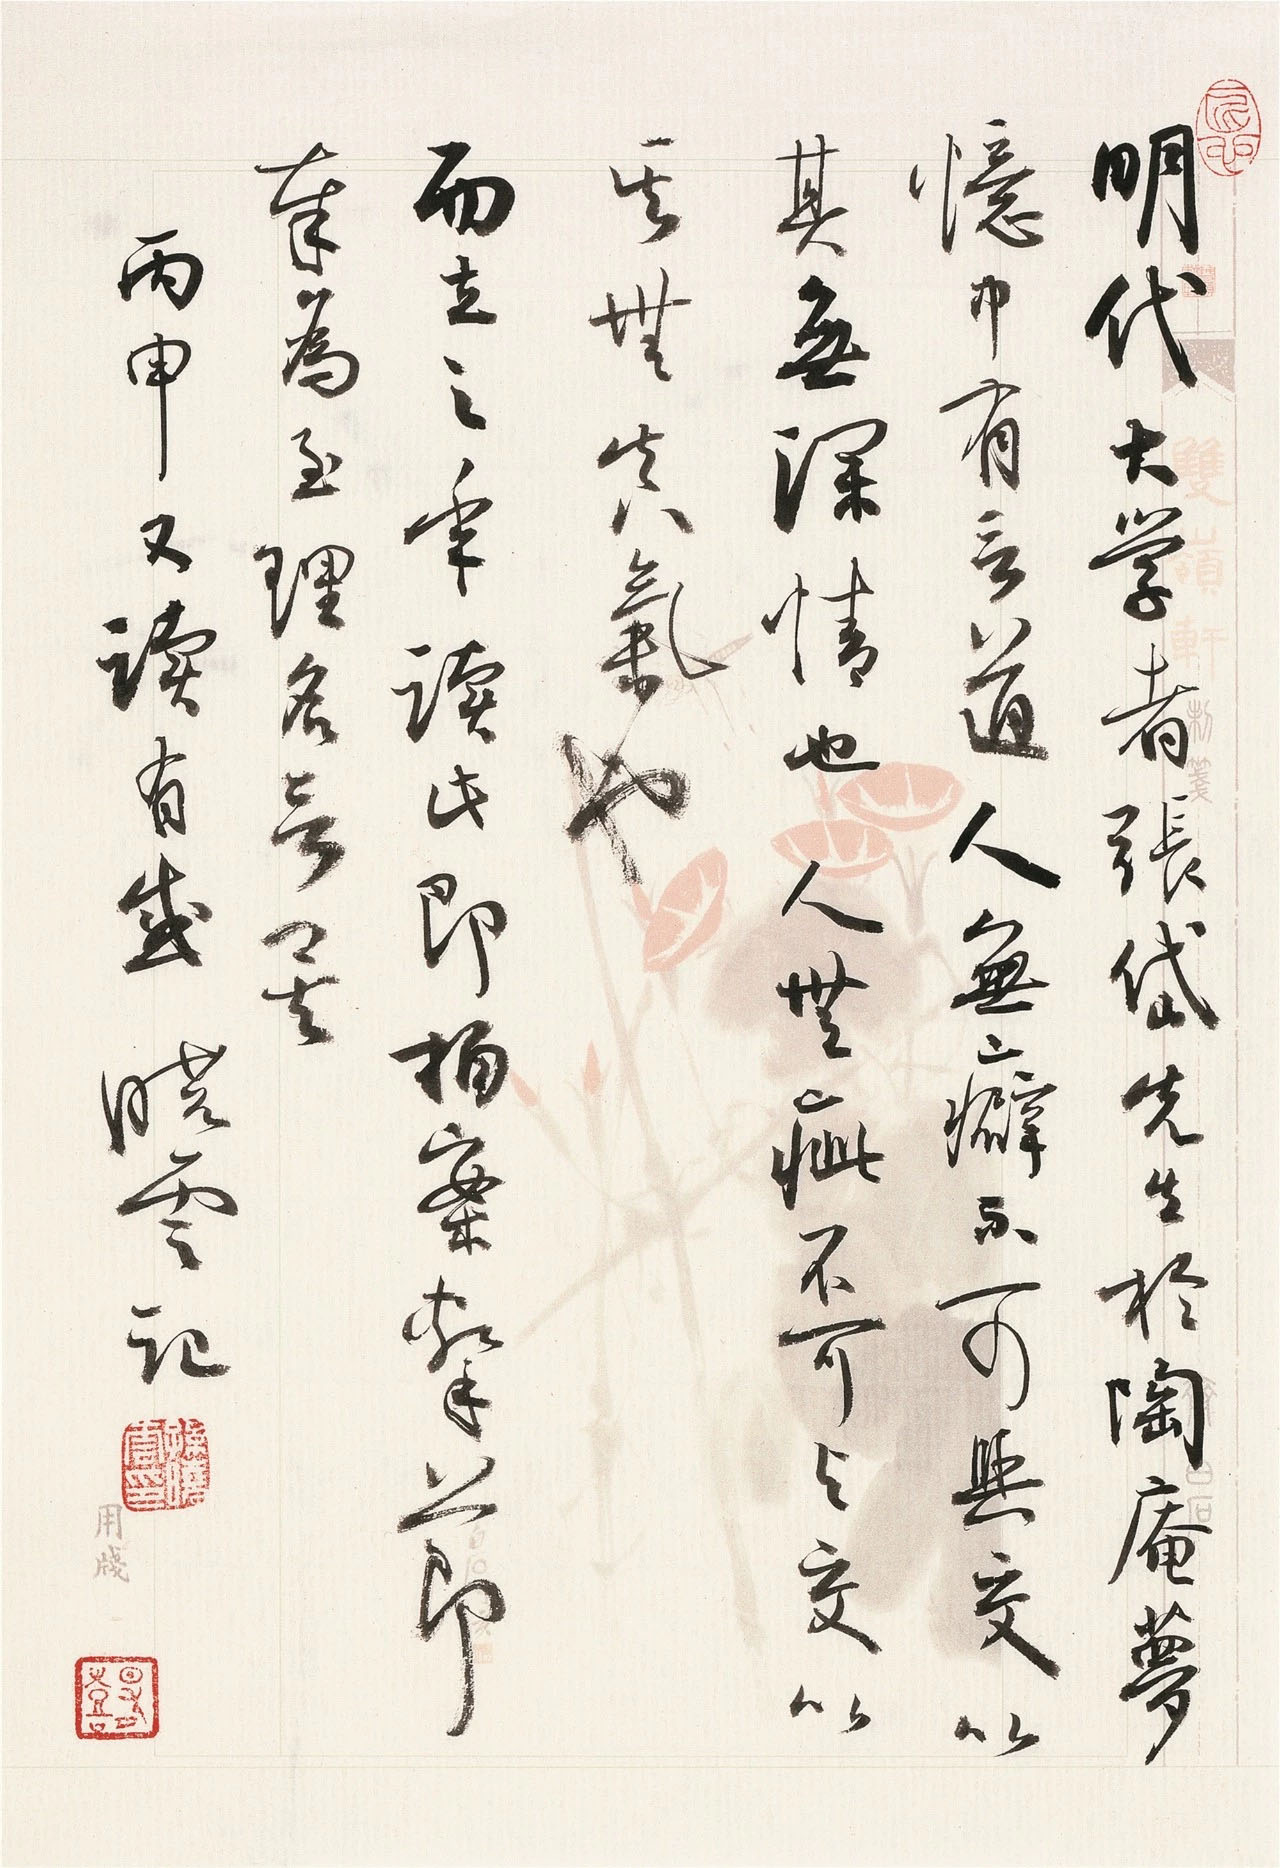 明代大学者張岱先生於陶庵夢
憶中有言道人無癖不可與交以
其無深情也人無疵不可与交以
其無真氣也
而立之年读此即拍案擊節
奉為至理名言矣
丙申又读有感 晓雲记
雙嶺軒制箋
用牋